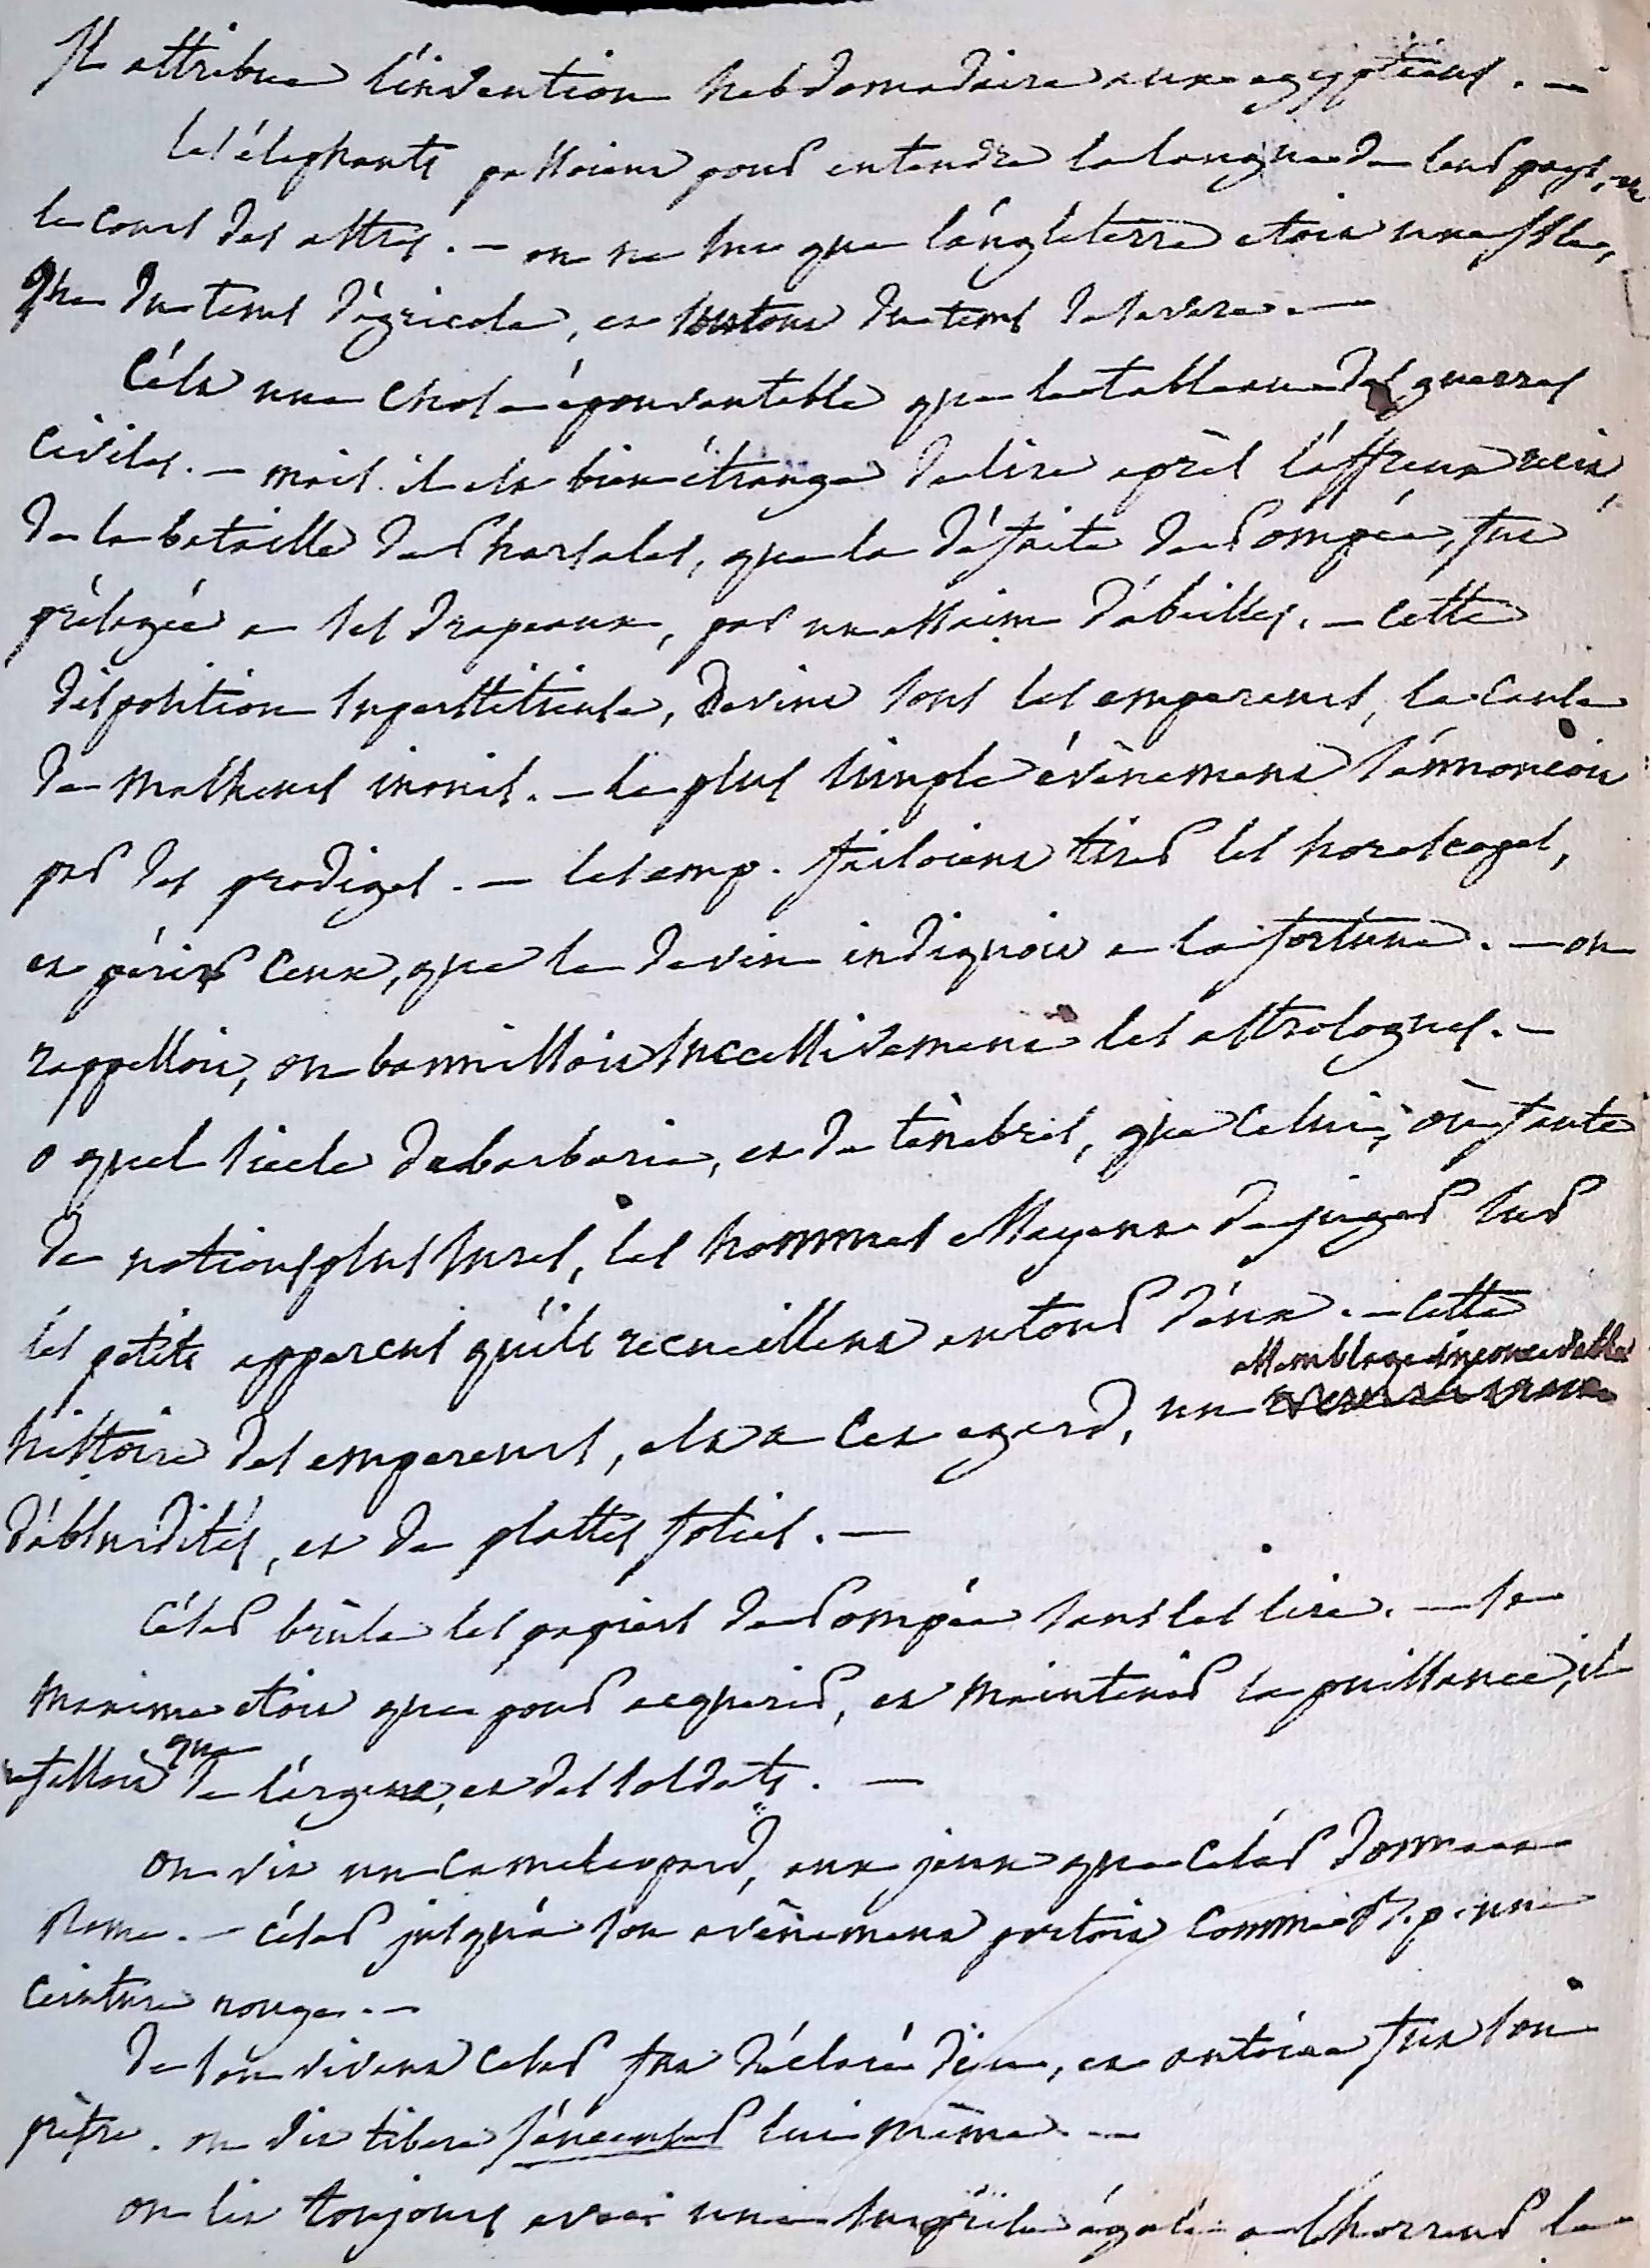 Il attribue l'invention hebdomadaire aux egyptiens. —
les éléphants passoient pour entendre la langue de leur pays, et
le cours des astres. — on ne sut que l'angleterre etoit une isle,
que du tems d'agricola, et surtout du tems de severe. —
C'est une chose épouvantable que le tableau des guerres
civiles. — mais il est bien étrange de lire après l'affreux récit,
de la bataille de Pharsales, que la défaite de Pompée, fut
présagée a ses drapeaux, par un essaim d'abeilles. — Cette
disposition superstitieuse, devint sous les empereurs, la cause
de malheurs inouis. — le plus simple évènement s'annonçoit
par des prodiges. — les emp. faisoient tirer les horoscopes,
et périr ceux, que le devin indiquoit a la fortune. — on
rappelloit, on bannissoit successivement les astrologues. —
o quel siecle de barbarie, et de tenèbres, que celui, où faute
de notions plus sures, les hommes essayent de juger sur
les petits apperçus qu'ils recueillent autour d'eux. — Cette
assemblage inconcevable
histoire des empereurs, est a cet egard, un
d'absurdités, et de plattes foties. —
César brûla les papiers de Pompée sans les lire. — sa
maxime etoit que pour acquerir, et maintenir la puissance, il
que
ne falloit de l'argent, et des soldats. —
on vit un cameleopard, aux jeux que César donna a
Rome. — César jusqu'a son avènement portoit comme une
ceinture rouge. —
de son vivant Cesar fut déclaré dieu, et antoine fut son
prêtre. on vit tibere s'encenser lui même. —
on lit toujours avec une surprise égale a l'horreur le